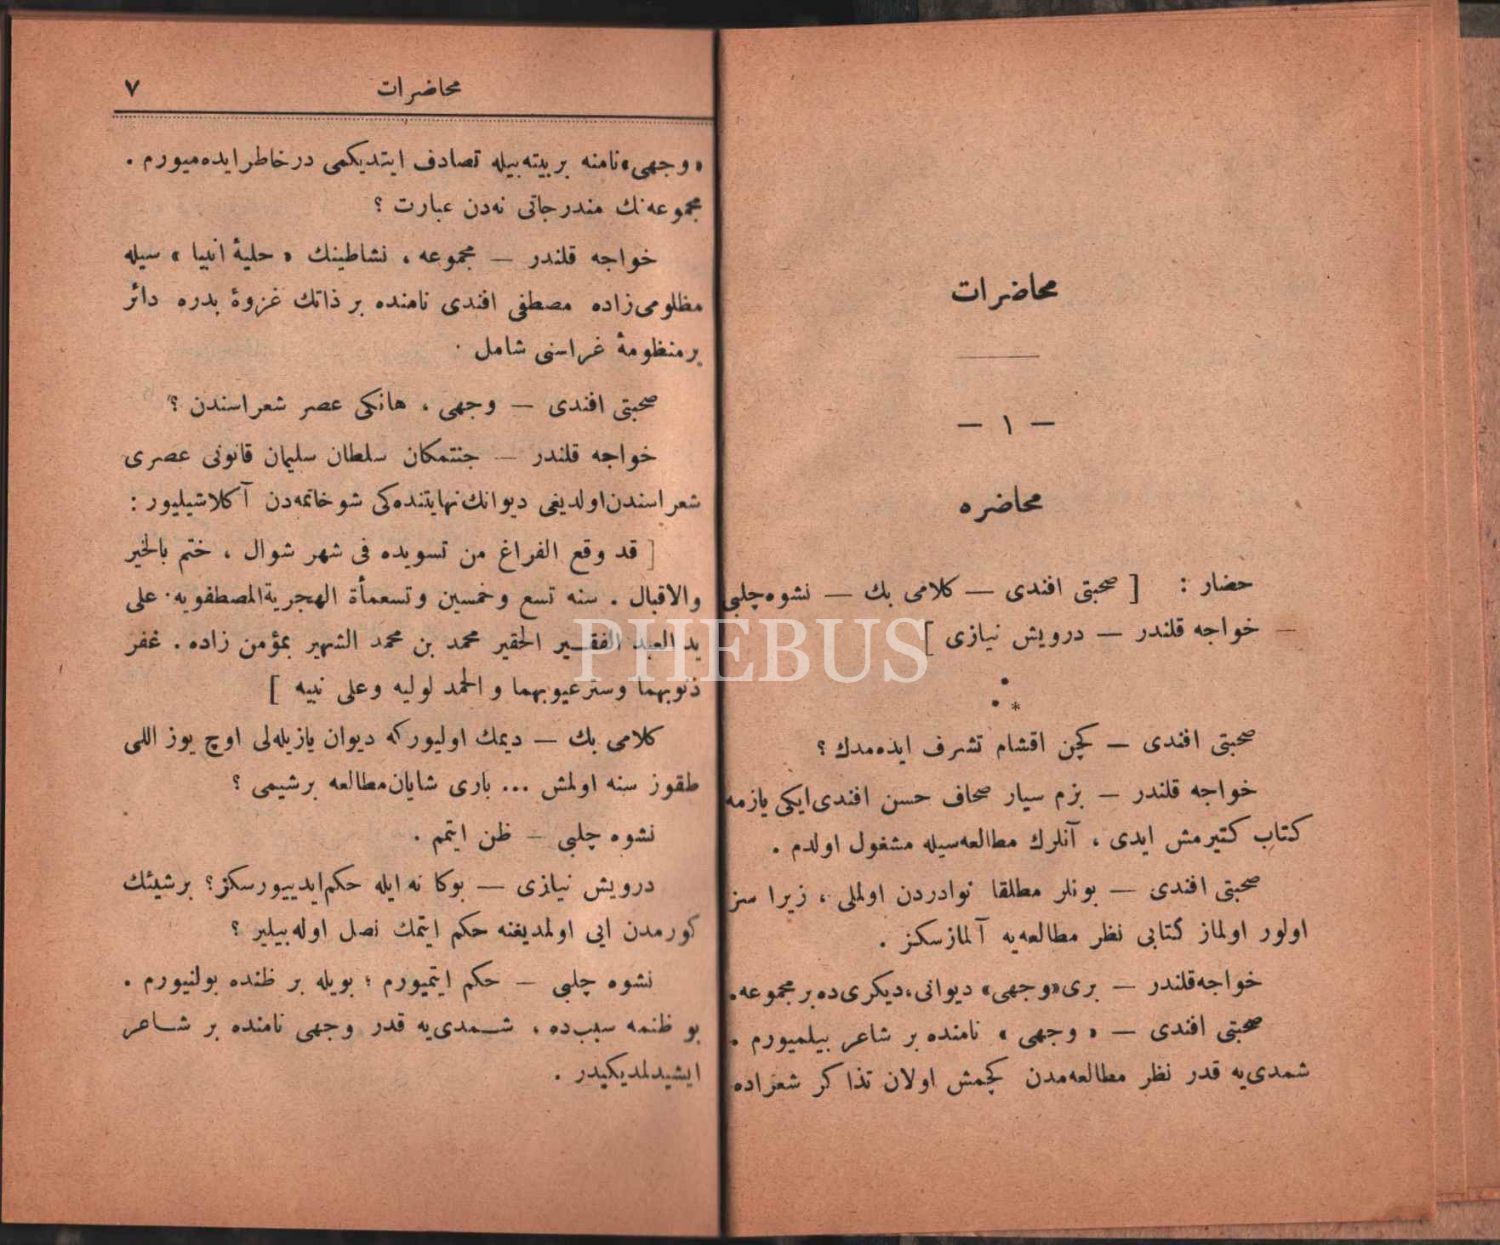 محاضرات
— ١ —
محاضره
حضار : [ صحبتی افندی — کلامی بك — نشوه چلبی
— خواجه قلندر — درویش نیازی ]
صحبتی افندی — کچن اقشام تشرف ایده‌مدك ؟
خواجه قلندر — بزم سیار صحاف حسن افندی ایکی یازمه
کتاب کتیرمش ایدی ، آنلرك مطالعه‌سیله مشغول اولدم .
صحبتی افندی — بونلر مطلقا نوادردن اولملی ، زیرا سز
اولور اولماز کتابی نظر مطالعه‌یه آلمازسکز .
خواجه قلندر — بری «وجهی» دیوانی، دیکری ده بر مجموعه.
صحبتی افندی — « وجهی » نامنده بر شاعر بیلمیورم .
شمدی‌یه قدر نظر مطالعه‌مدن کچمش اولان تذاکر شعراده
محاضرات ٧
«وجهی» نامنه بر بیته بیله تصادف ایتدیکمی درخاطر ایده‌میورم .
مجموعه‌نك مندرجاتی نه‌دن عبارت ؟
خواجه قلندر — مجموعه ، نشاطینك « حلیۀ انبیا » سیله
مظلومی‌زاده مصطفی افندی نامنده بر ذاتك غزوۀ بدره دائر
بر منظومۀ غراسنی شامل .
صحبتی افندی — وجهی ، هانکی عصر شعراسندن ؟
خواجه قلندر — جنتمکان سلطان سلیمان قانونی عصری
شعراسندن اولدیغی دیوانك نهایتنده‌کی شو خاتمه‌دن آکلاشیلیور :
[ قد وقع الفراغ من تسویده فی شهر شوال ، ختم بالخیر
والاقبال . سنه تسع وخمسین وتسعمأة الهجریةالمصطفویه . علی
ید العبد الفقیر الحقیر محمد بن محمد الشهیر بمؤمن زاده . غفر
ذنوبهما وسترعیوبهما و الحمد لولیه وعلی نبیه ]
کلامی بك — دیمك اولیورکه دیوان یازیله‌لی اوچ یوز اللی
طقوز سنه اولمش ... باری شایان مطالعه برشیمی ؟
نشوه چلبی — ظن ایتمم .
درویش نیازی — بوکا نه ایله حکم ایدییورسکز ؟ برشیئك
کورمدن ایی اولمدیغنه حکم ایتمك نصل اوله‌بیلیر ؟
نشوه چلبی — حکم ایتمیورم ؛ بویله بر ظنده بولنیورم .
بو ظنمه سبب ده ، شمدی‌یه قدر وجهی نامنده بر شاعر
ایشیدلمدیکیدر .
PHEBUS